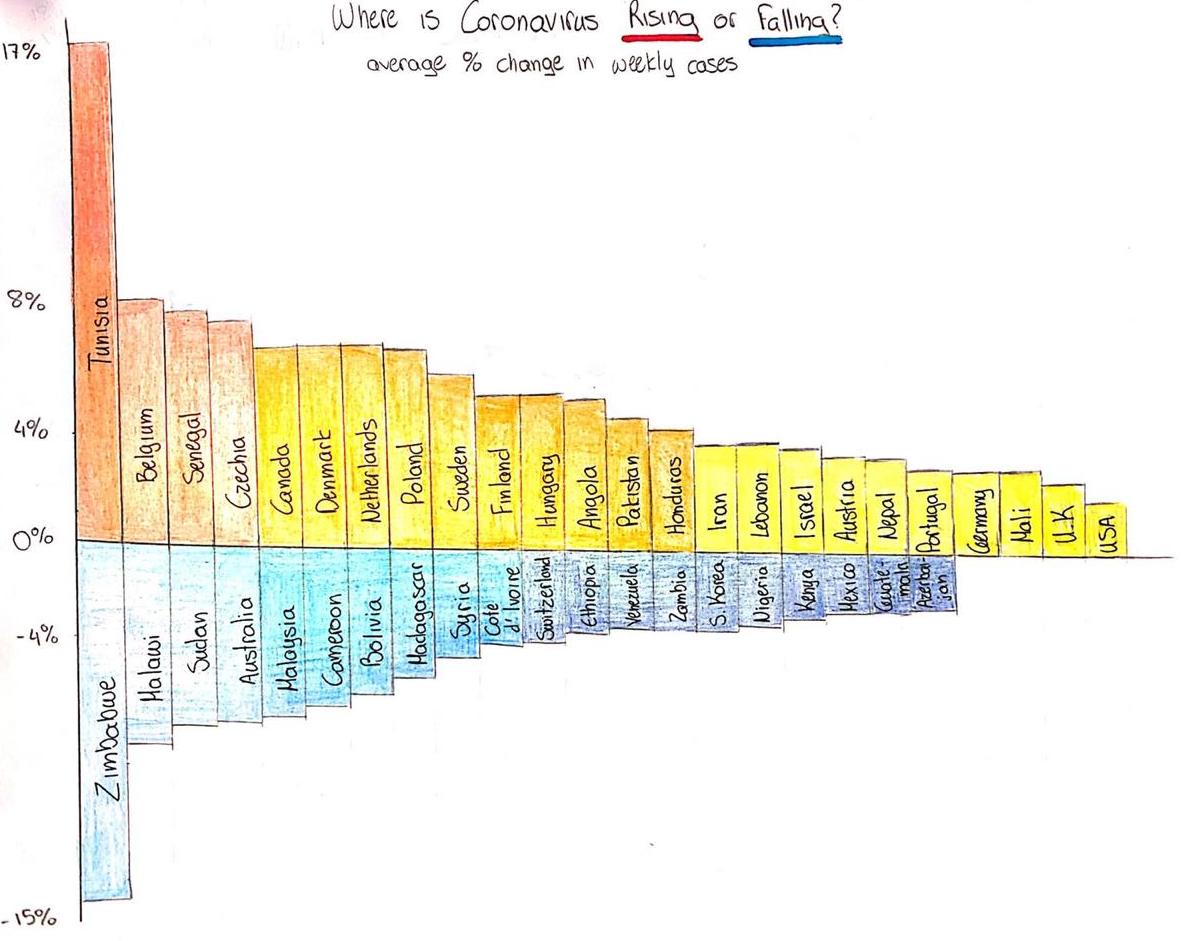 Where is Coronavirus Rising or Falling?
average % change in weekly cases
17%
8%
4%
0%
-4%
-15%
Tunisia
Belgium
Senegal
Czechia
Canada
Denmark
Netherlands
Poland
Sweden
Finland
Hungary
Angola
Pakistan
Honduras
Iran
Lebanon
Israel
Austria
Nepal
Portugal
Germany
Mali
U.K
USA
Zimbabwe
Malawi
Sudan
Australia
Malaysia
Cameroon
Bolivia
Madagascar
Syria
Cote
d'Ivoire
Switzerland
Ethiopia
Venezuela
Zambia
S. Korea
Nigeria
Kenya
Mexico
Guate-
mala
Azerbai-
jan